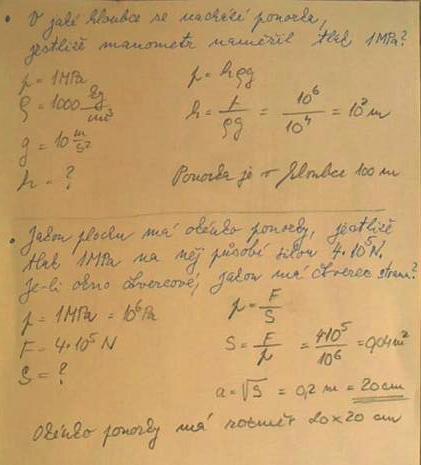 • V jaké hloubce se nachází ponorka,
jestliže manometr naměřil tlak 1MPa?
p = 1MPa
ρ = 1000 kg/m³
g = 10 m/s²
h = ?
p = hρg
h = p/ρg = 10⁶/10⁴ = 10² m
Ponorka je v hloubce 100 m
• Jakou plochu má okénko ponorky, jestliže
tlak 1MPa na něj působí silou 4·10⁵N.
Je-li okno čtvercové, jakou má čtverec stranu?
p = 1MPa = 10⁶Pa
F = 4·10⁵ N
S = ?
p = F/S
S = F/p = 4·10⁵/10⁶ = 0,04 m²
a = √S = 0,2 m = 20cm
Okénko ponorky má rozměr 20×20 cm